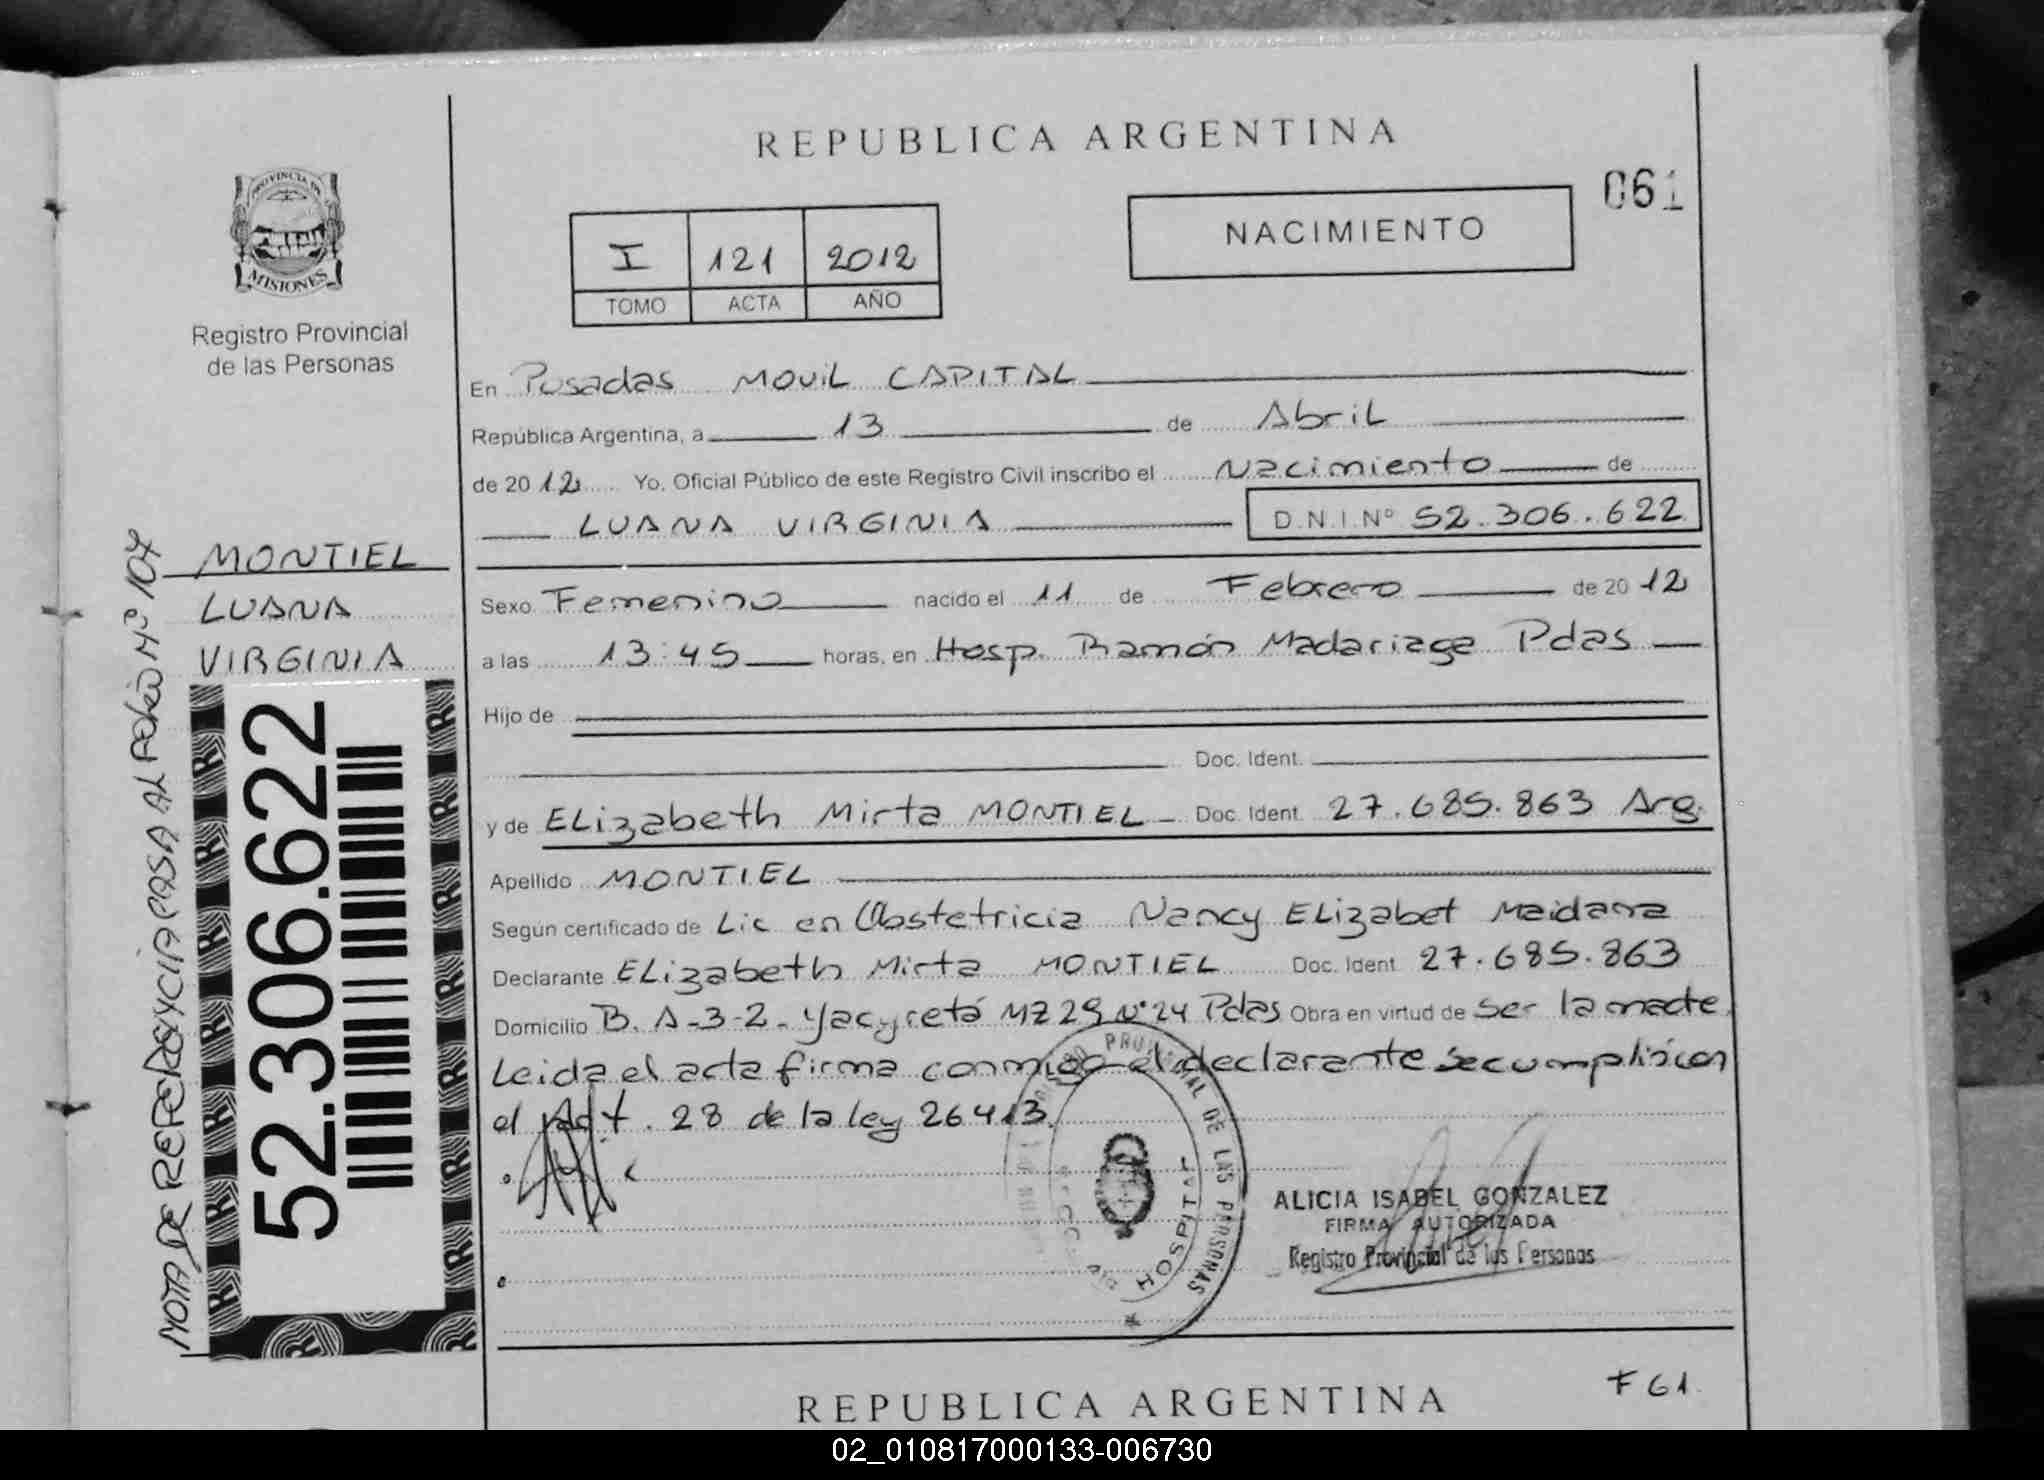 REPUBLICA ARGENTINA
061
PROVINCIA DE
MISIONES
Registro Provincial
de las Personas
I 121 2012
TOMO ACTA AÑO
NACIMIENTO
En Posadas MOVIL CAPITAL
República Argentina, a 13 de Abril
de 20 12 Yo, Oficial Público de este Registro Civil inscribo el Nacimiento de
LUANA VIRGINIA D.N.I.Nº 52.306.622
MONTIEL
LUANA
VIRGINIA
NOTA DE REFERENCIA PASA AL FOLIO Nº 107
52.306.622
Sexo Femenino nacido el 11 de Febrero de 20 12
a las 13:45 horas, en Hosp. Ramón Madariaga Pdas
Hijo de
Doc. Ident.
y de Elizabeth Mirta MONTIEL Doc. Ident. 27.685.863 Arg.
Apellido MONTIEL
Según certificado de Lic en Obstetricia Nancy Elizabet Maidana
Declarante Elizabeth Mirta MONTIEL Doc. Ident. 27.685.863
Domicilio B. A-3-2. Yacyretá MZ 29 Nº 24 Pdas Obra en virtud de ser la madre
Leida el acta firma conmigo el declarante se cumplió con
el Art. 28 de la ley 26413.
PROVINCIAL DE LAS PERSONAS
HOSPITAL
ALICIA ISABEL GONZALEZ
FIRMA AUTORIZADA
Registro Provincial de las Personas
F 61.
REPUBLICA ARGENTINA
02_010817000133-006730